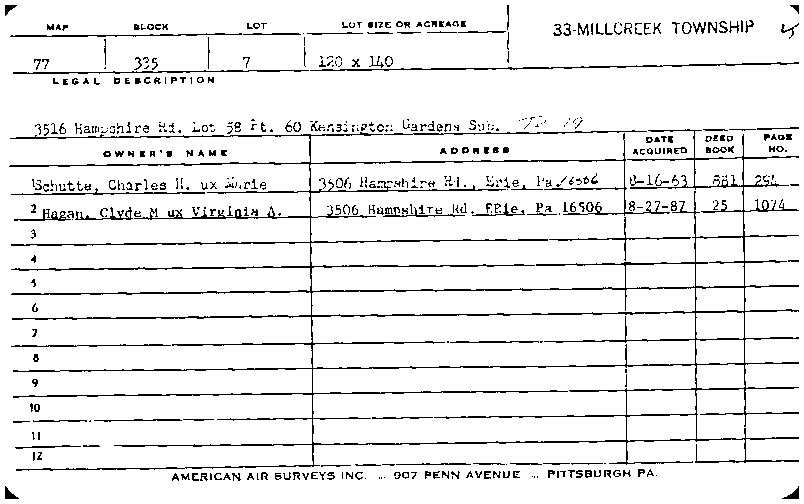 MAP BLOCK LOT LOT SIZE OR ACREAGE 33-MILLCREEK TOWNSHIP
77 335 7 120 x 140
LEGAL DESCRIPTION
3516 Hampshire Rd. Lot 58 Pt. 60 Kensington Gardens Sub.
OWNER'S NAME ADDRESS DATE ACQUIRED DEED BOOK PAGE NO.
Schutte, Charles H. ux Marie 3506 Hampshire Rd., Erie, Pa. 16506 8-16-63 881 294
2 Hagan, Clyde M ux Virginia A. 3506 Hampshire Rd. ERie, Pa 16506 8-27-87 25 1074
3
4
5
6
7
8
9
10
11
12
AMERICAN AIR SURVEYS INC. ... 907 PENN AVENUE ... PITTSBURGH PA.